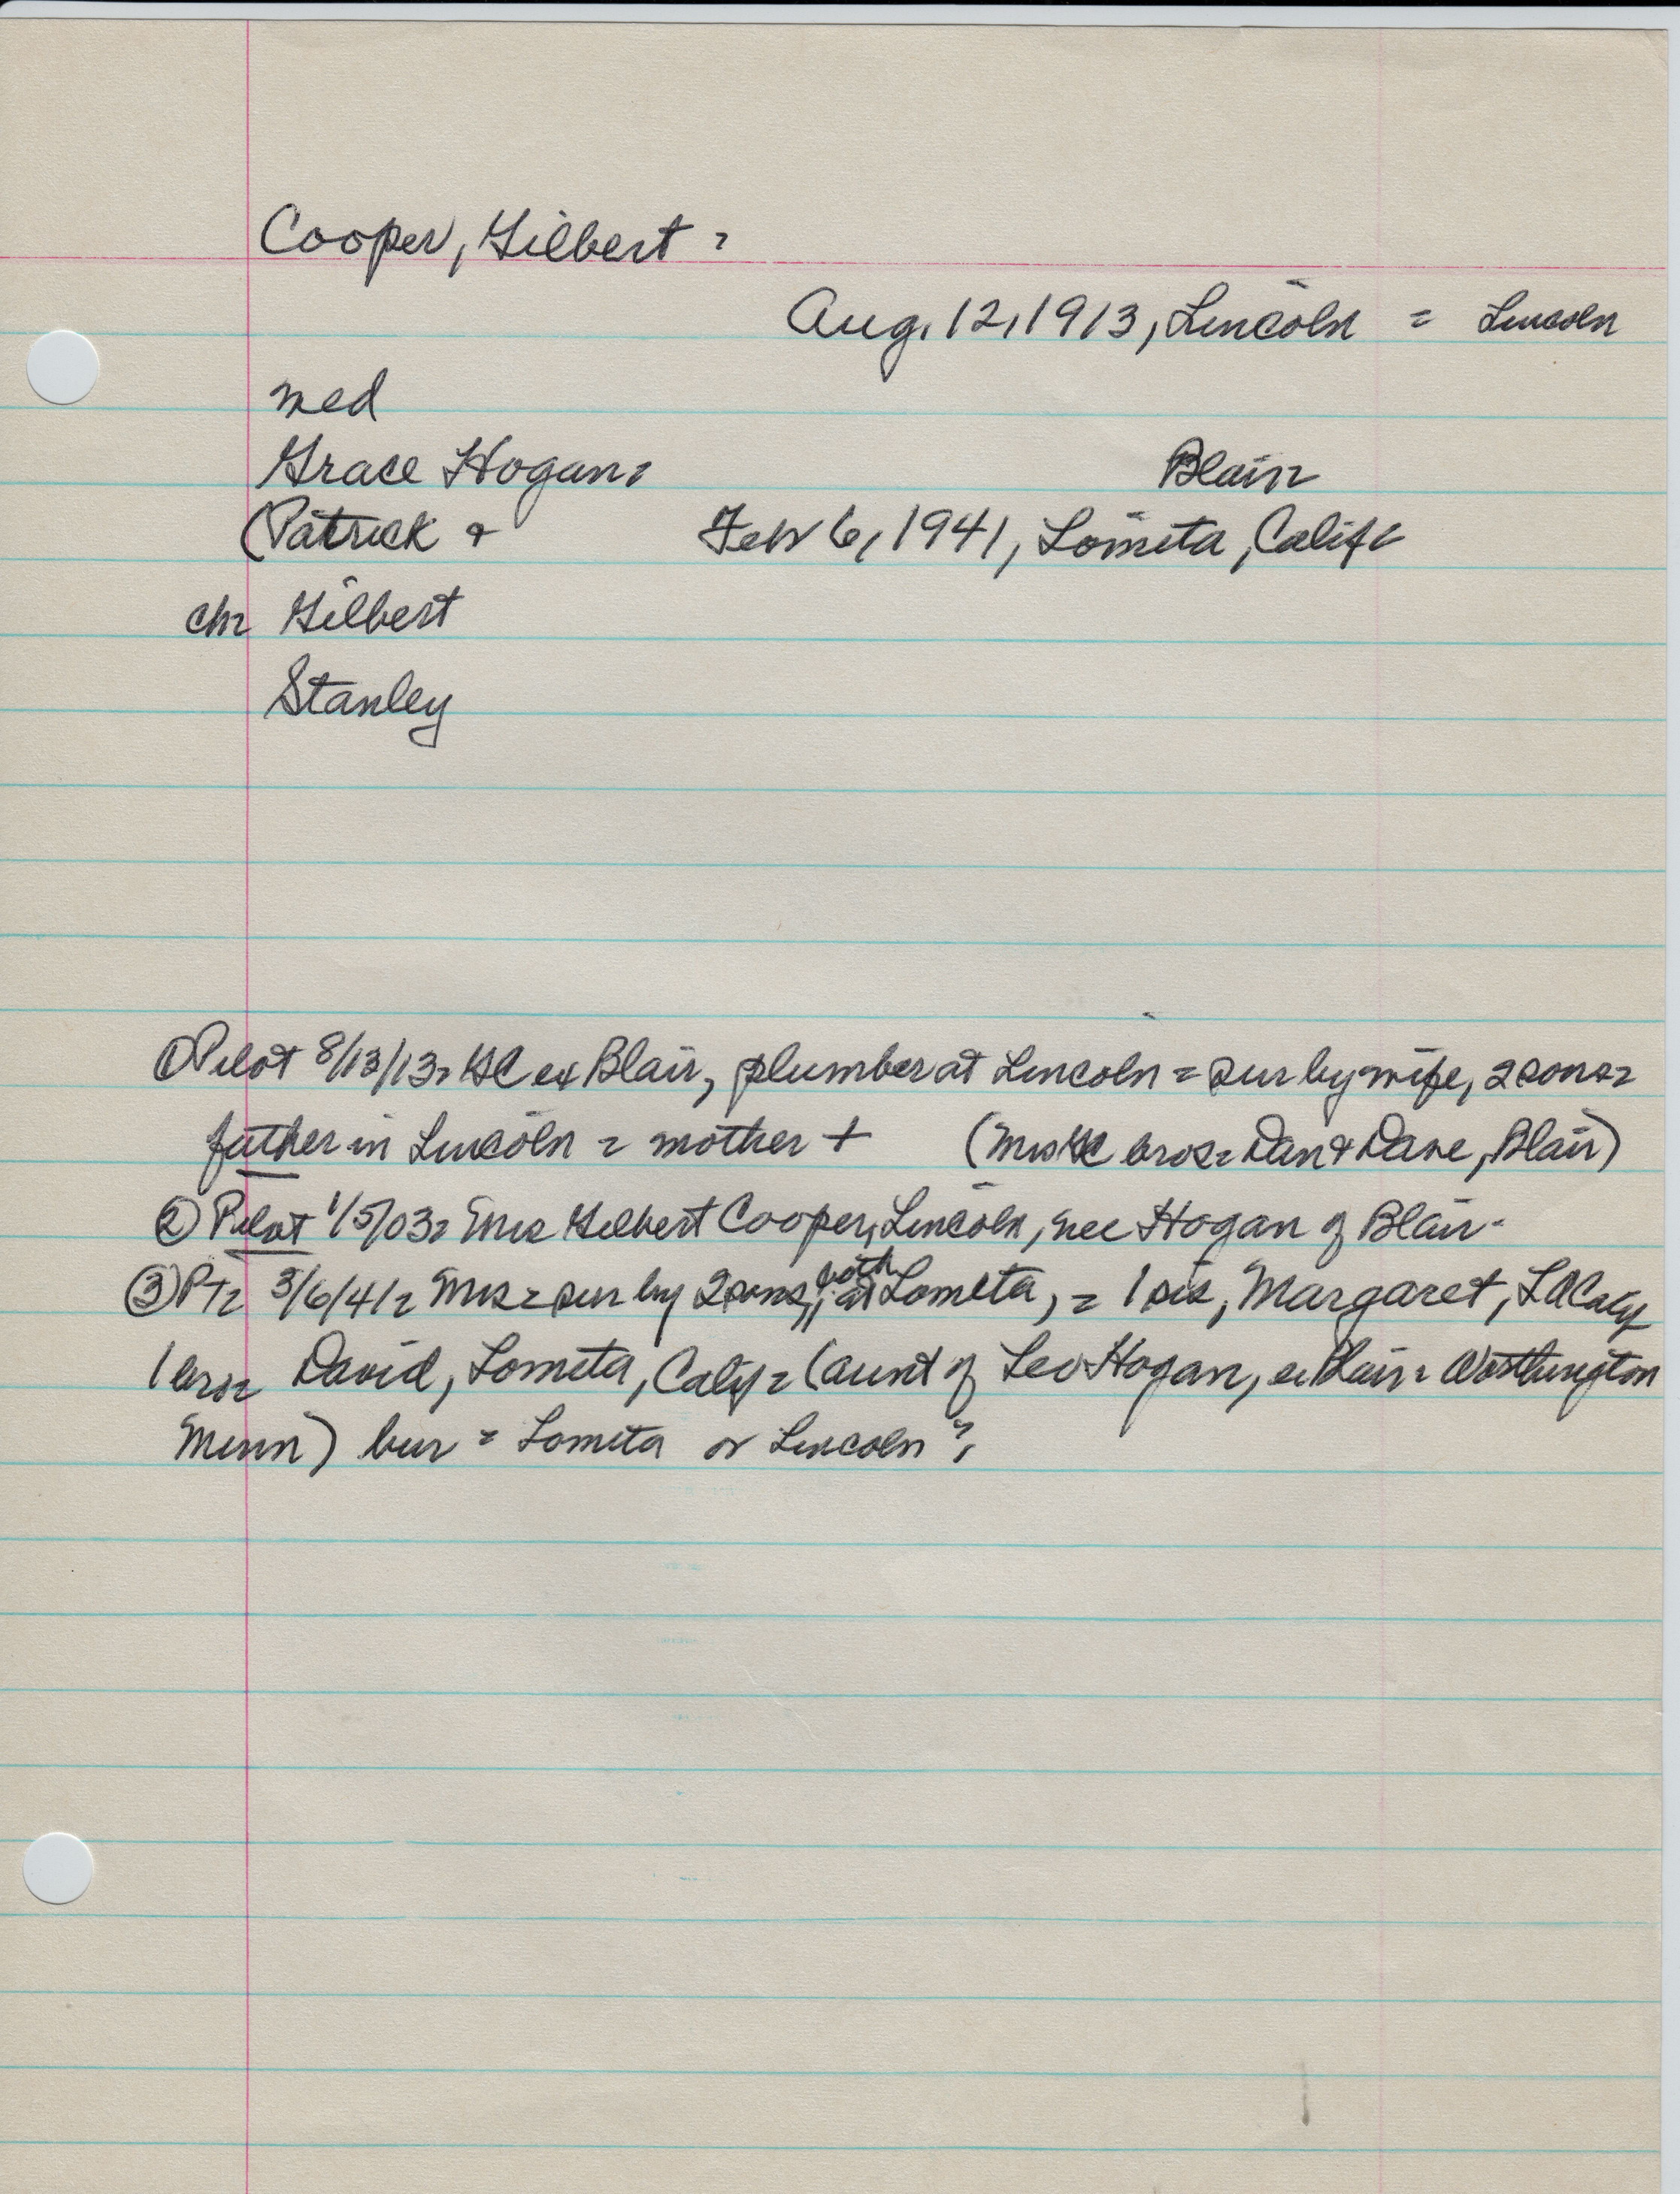 Cooper, Gilbert =
Aug. 12, 1913, Lincoln = Lincoln
med
Grace Hogan = Blair =
(Patrick + Feb 6, 1941, Lomita, Calif =
ch = Gilbert
Stanley
① Pilot 8/13/13 = GC ex Blair, plumber at Lincoln = sur by wife, 2 sons =
father in Lincoln = mother + (Mrs GC bros = Dan & Dave, Blair)
② Pilot 1/5/03 = Mrs Gilbert Cooper, Lincoln, nee Hogan of Blair -
③ PT = 3/6/41 = Mrs = sur by 2 sons, both at Lomita, = 1 sis, Margaret, LA Calif
1 bro = David, Lomita, Calif = (aunt of Leo Hogan, ex Blair = Worthington
Minn) bur = Lomita or Lincoln?